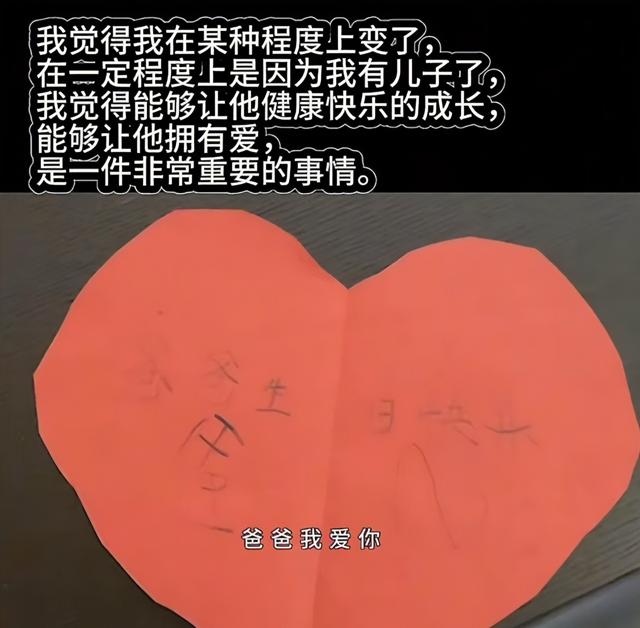 我觉得我在某种程度上变了，
在一定程度上是因为我有儿子了，
我觉得能够让他健康快乐的成长，
能够让他拥有爱，
是一件非常重要的事情。
爸爸生日
爸爸我爱你